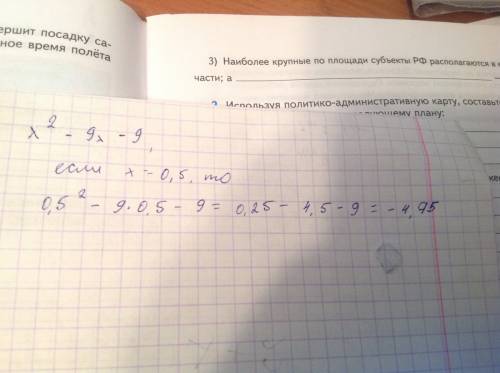 ершит посадку са-
ное время полёта
3) Наиболее крупные по площади субъекты РФ располагаются в
части; а
2. Используя политико-административную карту, составьте
плану:
x² - 9x - 9,
если x - 0,5, то
0,5² - 9·0,5 - 9 = 0,25 - 4,5 - 9 = - 4,95